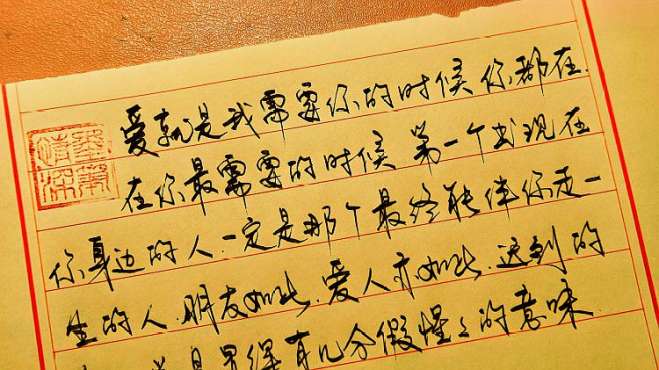 爱就是我需要你的时候 你都在.
在你最需要的时候 第一个出现在
你身边的人.一定是那个最终能伴你走一
生的人.朋友如此.爱人亦如此.迟到的
是显得有几分假惺々的意味